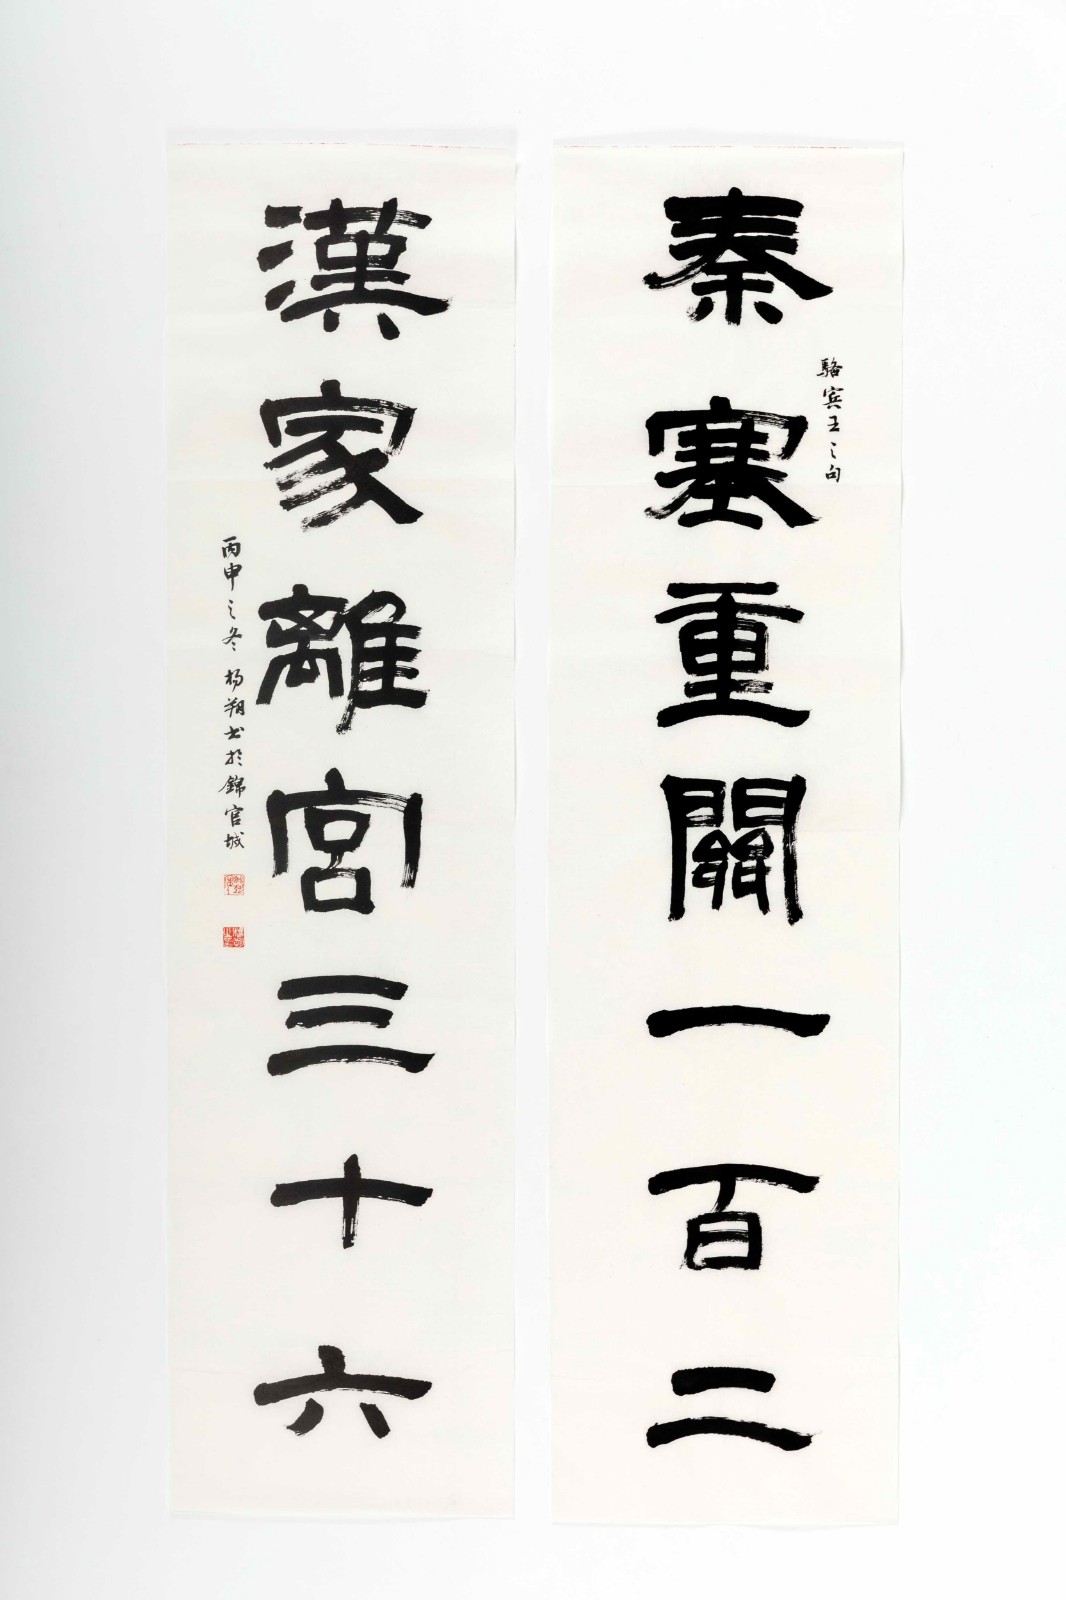 秦塞重關一百二
駱宾王之句
漢家離宮三十六
丙申之冬杨朔书於錦官城